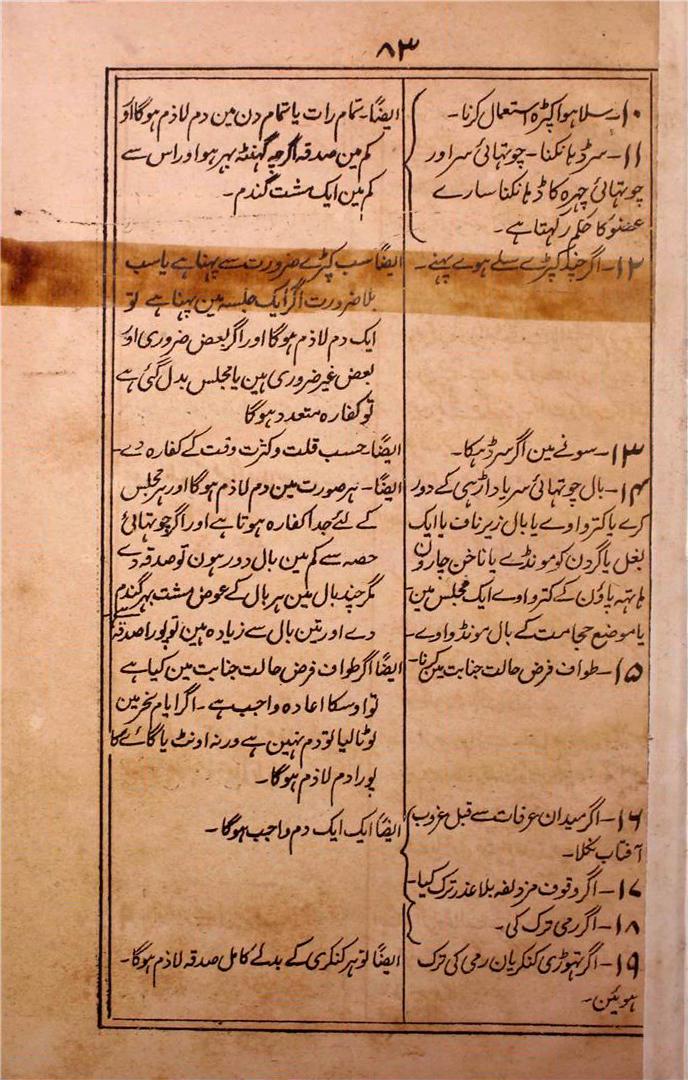 ۸۳
۱۰- سلا ہوا کپڑہ استعمال کرنا۔
۱۱- سر ڈہانکنا۔ چوتہائی سر اور
چوتہائی چہرہ کا ڈہانکنا سارے
عضو کا حکم رکہتا ہے۔
ایضًا۔ تمام رات یا تمام دن مین دم لازم ہوگا اور
کم مین صدقہ اگرچہ گہنٹہ بہر ہو اور اس سے
کم مین ایک مشت گندم۔
۱۲- اگر چند کپڑے سلے ہوے پہنے۔
ایضًا سب کپڑے ضرورت سے پہنا ہے یا سب
بلا ضرورت اگر ایک جلسہ مین پہنا ہے تو
ایک دم لازم ہوگا اور اگر بعض ضروری اور
بعض غیر ضروری ہین یا مجلس بدل گئی ہے
تو کفارہ متعدد ہوگا
۱۳- سونے مین اگر سر ڈہکا۔
ایضًا۔ حسب قلت وکثرت وقت کے کفارہ دے۔
۱۴- بال چوتہائی سر یا داڑہی کے دور
کرے یا کتر واوے یا بال زیر ناف یا ایک
بغل یا گردن کو مونڈے یا ناخن چارون
ہاتہہ پاؤن کے کتر واوے ایک مجلس مین
یا موضع حجامت کے بال مونڈواوے۔
ایضًا۔ ہر صورت مین دم لازم ہوگا اور ہر مجلس
کے لئے جدا کفارہ ہوتا ہے اور اگر چوتہائی
حصہ سے کم مین بال دور ہون تو صدقہ دے
مگر چند بال مین ہر بال کے عوض مشت بہر گندم
دے اور تین بال سے زیادہ ہین تو پورا صدقہ
۱۵- طواف فرض حالت جنابت مین کرنا۔
ایضًا اگر طواف فرض حالت جنابت مین کیا ہے
تو اوسکا اعادہ واجب ہے۔ اگر ایام نحر مین
لوٹا لیا تو دم نہین ہے ورنہ اونٹ یا گائے کا
پورا دم لازم ہوگا۔
۱۶- اگر میدان عرفات سے قبل غروب
آفتاب نکلا۔
۱۷- اگر وقوف مزدلفہ بلا عذر ترک کیا۔
۱۸- اگر رمی ترک کی۔
ایضًا ایک ایک دم واجب ہوگا۔
۱۹- اگر تہوڑی کنکریان رمی کی ترک
ہوئین۔
ایضًا تو ہر کنکری کے بدلے کامل صدقہ لازم ہوگا۔